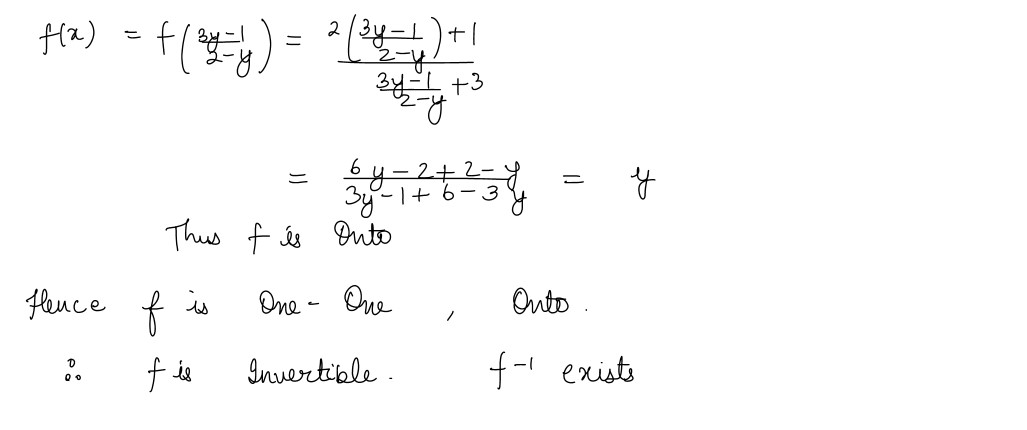 f(x) = f((3y-1)/(2-y)) = (2((3y-1)/(2-y))+1)/((3y-1)/(2-y)+3)
= (6y-2+2-y)/(3y-1+6-3y) = y
Thus f is Onto
Hence f is One-One , Onto.
∴ f is Invertible. f⁻¹ exists